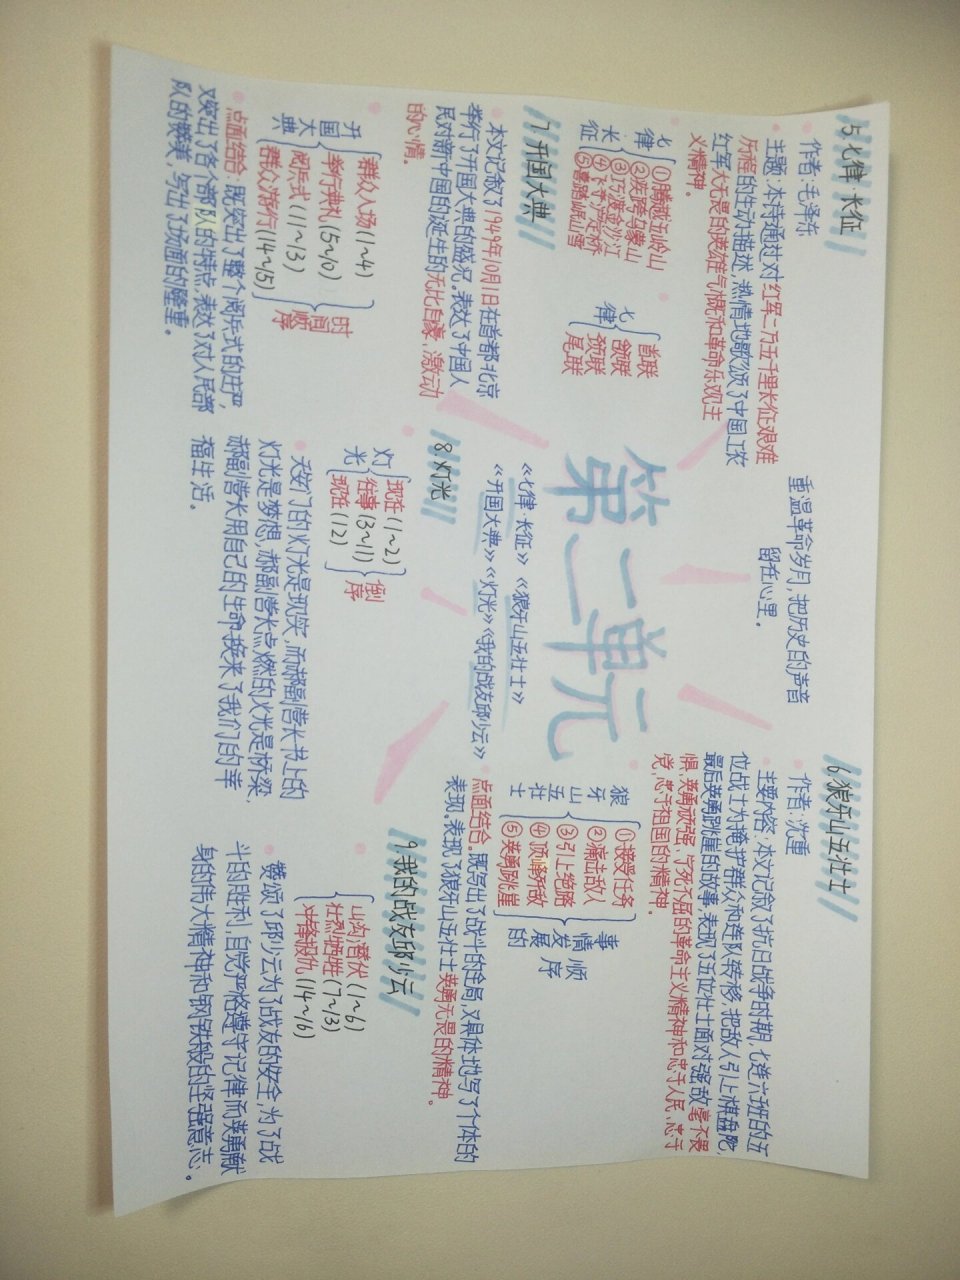 5 七律·长征
作者:毛泽东
主题:本诗通过对红军二万五千里长征艰难
历程的生动描述,热情地歌颂了中国工农
红军大无畏的英雄气概和革命乐观主
义精神。
七律长征
①腾越五岭山
②疾跨乌蒙山
③巧渡金沙江
④飞夺泸定桥
⑤喜踏岷山雪
七律
首联
颔联
颈联
尾联
7 开国大典
本文记叙了1949年10月1日在首都北京
举行了开国大典的盛况。表达了中国人
民对新中国的诞生的无比自豪、激动
的心情。
开国大典
群众入场(1~4)
举行典礼(5~10)
阅兵式(11~13)
群众游行(14~15)
时间顺序
点面结合:既突出了整个阅兵式的庄严,
又突出了各个部队的特点,表达了对人民部
队的赞美,写出了场面的隆重。
重温革命岁月,把历史的声音
留在心里。
第二单元
《七律·长征》《狼牙山五壮士》
《开国大典》《灯光》《我的战友邱少云》
8 灯光
灯光
现在(1~2)
往事(3~11)
现在(12)
倒序
天安门的灯光是现实,而郝副营长书上的
灯光是梦想,郝副营长点燃的火光是桥梁,
郝副营长用自己的生命换来了我们的幸
福生活。
6 狼牙山五壮士
作者:沈重
主要内容:本文记叙了抗日战争时期,七连六班的五
位战士为掩护群众和连队转移,把敌人引上棋盘陀,
最后英勇跳崖的故事,表现了五位壮士面对强敌毫不畏
惧、英勇顽强、宁死不屈的革命主义精神和忠于人民、忠于
党、忠于祖国的精神。
狼牙山五壮士
①接受任务
②痛击敌人
③引上绝路
④顶峰歼敌
⑤英勇跳崖
事情发展的顺序
点面结合。既写出了战斗的全局,又具体地写了个体的
表现。表现了狼牙山五壮士英勇无畏的精神。
9.我的战友邱少云
山沟潜伏(1~6)
壮烈牺牲(7~13)
冲锋报仇(14~16)
赞颂了邱少云为了战友的安全,为了战
斗的胜利,自觉严格遵守记律而英勇献
身的伟大精神和钢铁般的坚强意志。